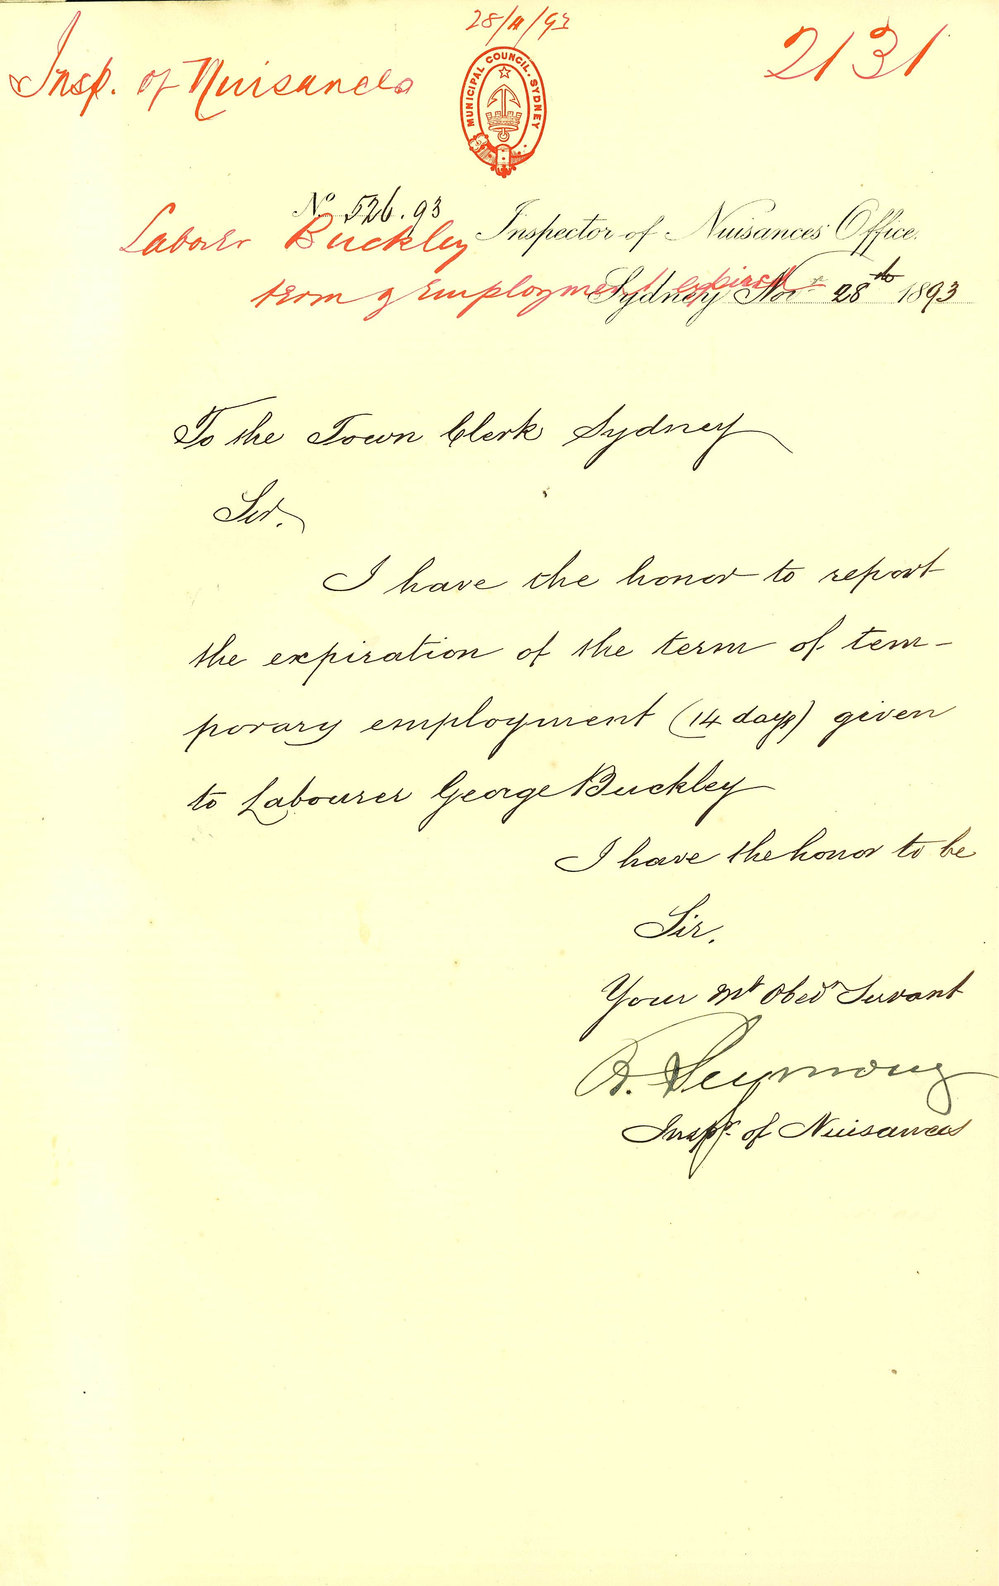 28/11/93
2131
Insp. of Nuisances
MUNICIPAL COUNCIL. SYDNEY
No 526.93
Inspector of Nuisances Office.
Laborer Buckley
term of Employment expired
Sydney Novr 28th 1893
To the Town Clerk Sydney
Sir.
I have the honor to report
the expiration of the term of tem-
porary employment (14 days) given
to Labourer George Buckley
I have the honor to be
Sir.
Your Mt Obedt Servant
R. Seymour
Inspr. of Nuisances